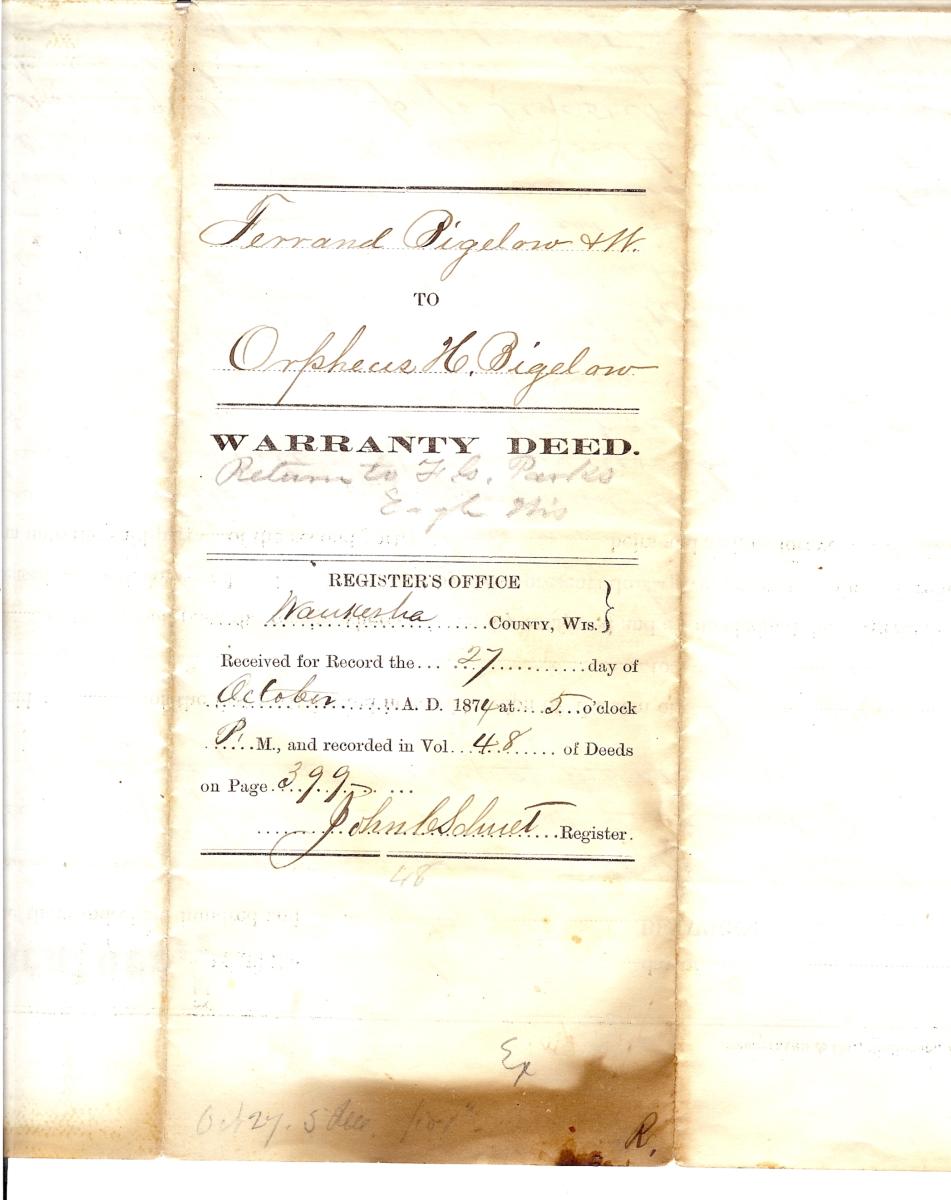 Ferrand Bigelow & W.
TO
Orpheus H. Bigelow
WARRANTY DEED.
Return to F. G. Parks
Eagle Wis
REGISTER'S OFFICE
Waukesha COUNTY, WIS.
Received for Record the 27 day of
October A. D. 1874 at 5 o'clock
P. M., and recorded in Vol. 48 of Deeds
on Page 399
John C Schuet Register.
48
Ex
Oct 27. 5
R.